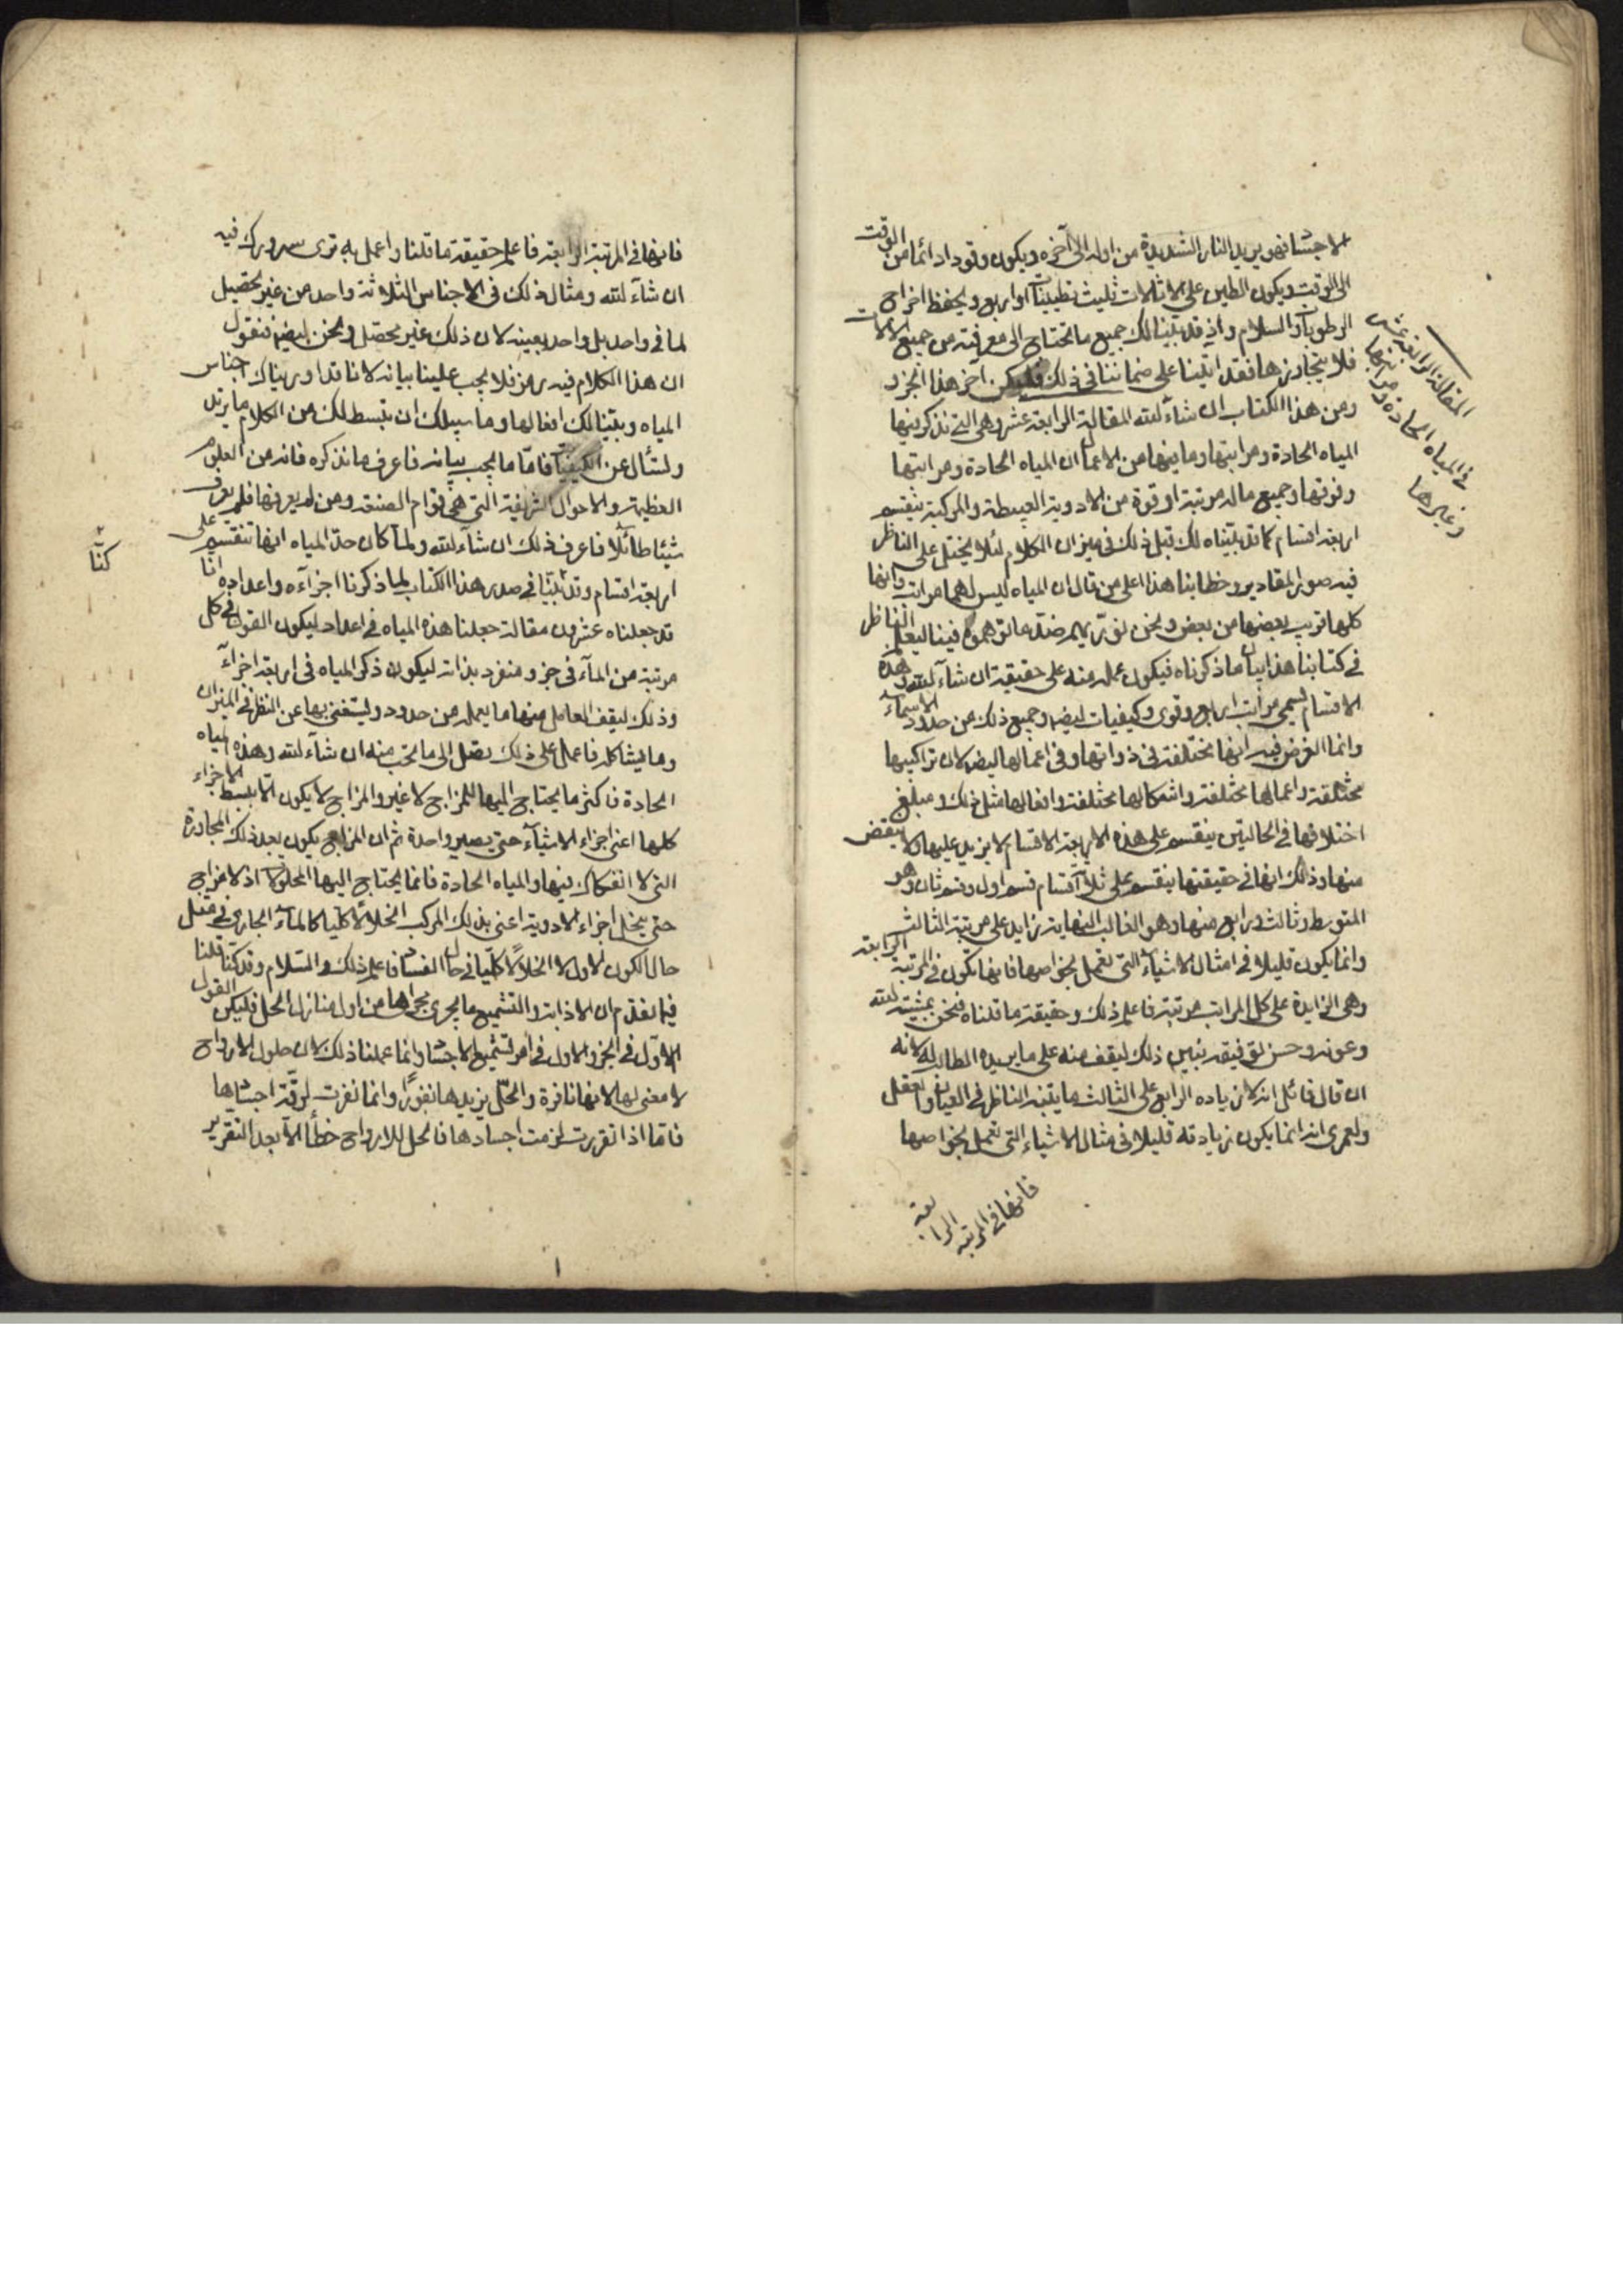 الاجساد فهو يريد النار الشديدة من اوله الى آخره ويكون وقودا دائما من الوقت
الى الوقت ويكون الطين على الاثالات ثليث تطيينات او اربع ويحفظ اخراج
الرطوبات والسلام واذ قد بينا لك جميع ما تحتاج الى معرفته من جميع الآلات
فلا يتجاوزها فقد اتينا على ضماننا في ذلك فليكن آخر هذا الجزو
ومن هذا الكتاب ان شاء الله المقالة الرابعة عشر وهي التي نذكر فيها
المياه الحادة ومراتبها وما فيها من الاعمال ان المياه الحادة ومراتبها
وقوتها وجميع ماله مرتبة او قوة من الادوية البسيطة والمركبة ينقسم
اربعة اقسام كما قد بيناه لك قبل ذلك في ميزان الكلام لئلا يختل على الناظر
فيه صور المقادير وخطابنا هذا على من قال ان المياه ليس لها مراتب وانها
كلها قريب بعضها من بعض ونحن نوريهم ضد ما توهموه فينا ليعلم الناظر
في كتابنا هذا بيان ما ذكرناه فيكون عمله منه على حقيقة ان شاء الله وهذه
الاقسام تسمى مراتب اربع وقوى وكيفيات ايضا وجميع ذلك من حدود الاسماء
وانما الغرض فيه انها مختلفة في ذواتها وفي اعمالها ايضا لان تراكيبها
مختلفة واعمالها مختلفة واشكالها مختلفة وافعالها مثل ذلك ومبلغ
اختلافها في الحالتين ينقسم على هذه الاربعة الاقسام لا يزيد عليها ولا ينقص
منها وذلك انها في حقيقتها ينقسم على ثلاث اقسام قسم اول وقسم ثان وهو
المتوسط وثالث ورابع منها وهو الغالب النهاية زايد على مرتبة الثالث
وانما يكون قليلا في امثال الاشياء التي تعمل بخواصها فانها تكون في المرتبة الرابعة
وهي الزايدة على كل المراتب مرتبة فاعلم ذلك وحقيقة ما قلناه فنحن بمشيئة الله
وعونه وحسن توفيقه نبين ذلك ليقف منه على ما يريده الطالب له لانه
ان قال قائل انه لا زياده الرابع على الثالث ما يتبنه الناظر في العيان والعقل
ولعمري انه انما يكون زيادته قليلا في مثال الاشياء التي تعمل بخواصها
فانها في المرتبة الرابعة
المقالة الرابعة عشر
في المياه الحادة ومراتبها
وغيرها
فانها في المرتبة الرابعة فاعلم حقيقة ما قلنا واعمل به ترى سرورك فيه
ان شاء الله ومثال ذلك في الاجناس الثلاثة واحد من غير تحصيل
لما في واحد بل واحد بعينه لان ذلك غير محصل ونحن ايضا فنقول
ان هذا الكلام فيه رمز فلا يجب علينا بيانه لانا قد اوريناك اجناس
المياه وبينا لك افعالها وما سبيلك ان نبسط لك من الكلام ما يزيد
ولتسأل عن الكيفيات فاما ما يجب بيانه فاعرف ما نذكره فانه من العلوم
العظيمة والاحوال الشريفة التي هي قوام الصنعة ومن لم يعرفها فلم يعرف
شيئا طائلا فاعرف ذلك ان شاء الله ولما كان حد المياه انها تنقسم على
اربعة اقسام وقد بينا في صدر هذا الكتاب لما ذكرنا اجزاءه واعداده انا
كنا
قد جعلناه عشرون مقالة جعلنا هذه المياه في اعداد ليكون القول في كل
مرتبة من الماء في جزو منفرد بذاته ليكون ذكر المياه في اربعة اجزاء
وذلك ليقف العامل منها ما يعمله من حدود ويستغنى بها عن النظر في الميزان
وما يشاكله فاعمل على ذلك تصل الى ما تحب منه ان شاء الله وهذه المياه
الحادة فاكثر ما يحتاج اليها للمزاج لا غير والمزاج لا يكون الا ببسط الاجزاء
كلها اعنى اجزاء الاشياء حتى يصير واحدة ثم ان المزاج يكون بعد ذلك المجاورة
التي لا انفكاك بينها والمياه الحادة فانما يحتاج اليها المحلولات اذ لا مزاج
حتى ينحل اجزاء الادوية اعنى بذلك المركب انحلالا كليا كالماء الجاري في مثل
حال الكون الاول لا انحلالا كليا في حال الفساد فاعلم ذلك والسلام وقد كنا قلنا
فيما تقدم ان الاذابة والتشميع ما يجري مجراها من اول منازل الحل فليكن القول
الاول في الجزو الاول في امر تشميع الاجساد وانما عملنا ذلك لان حلول الارواح
لا معنى لها لانها نافرة والحل يزيدها نفورا وانما نفرت لرقة اجسادها
فاما اذا تقررت لزمت اجسادها فالحل للارواح خطأ الا بعد التقرير